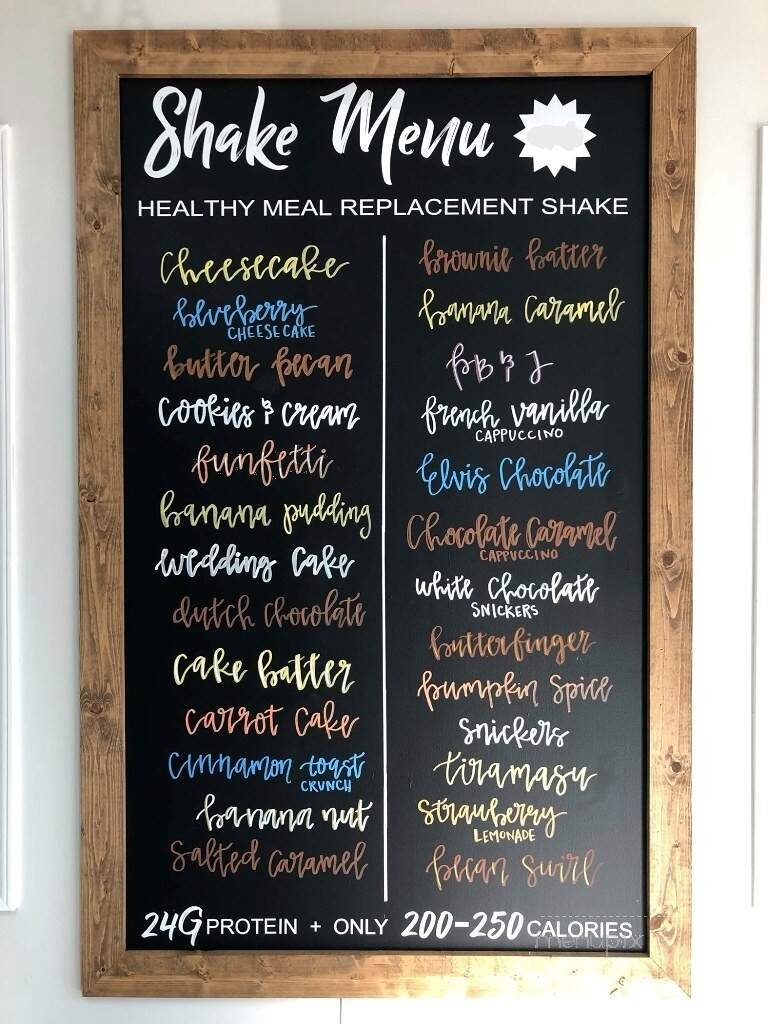 Shake Menu
HEALTHY MEAL REPLACEMENT SHAKE
Cheesecake
blueberry
CHEESECAKE
butter pecan
Cookies & cream
funfetti
banana pudding
wedding Cake
dutch chocolate
Cake batter
Carrot Cake
Cinnamon toast
CRUNCH
banana nut
Salted Caramel
brownie batter
banana Caramel
PB & J
french vanilla
CAPPUCCINO
Elvis Chocolate
Chocolate Caramel
CAPPUCCINO
white Chocolate
SNICKERS
butterfinger
pumpkin Spice
Snickers
tiramasu
Strawberry
LEMONADE
pecan Swirl
24G PROTEIN + ONLY 200-250 CALORIES
menupix